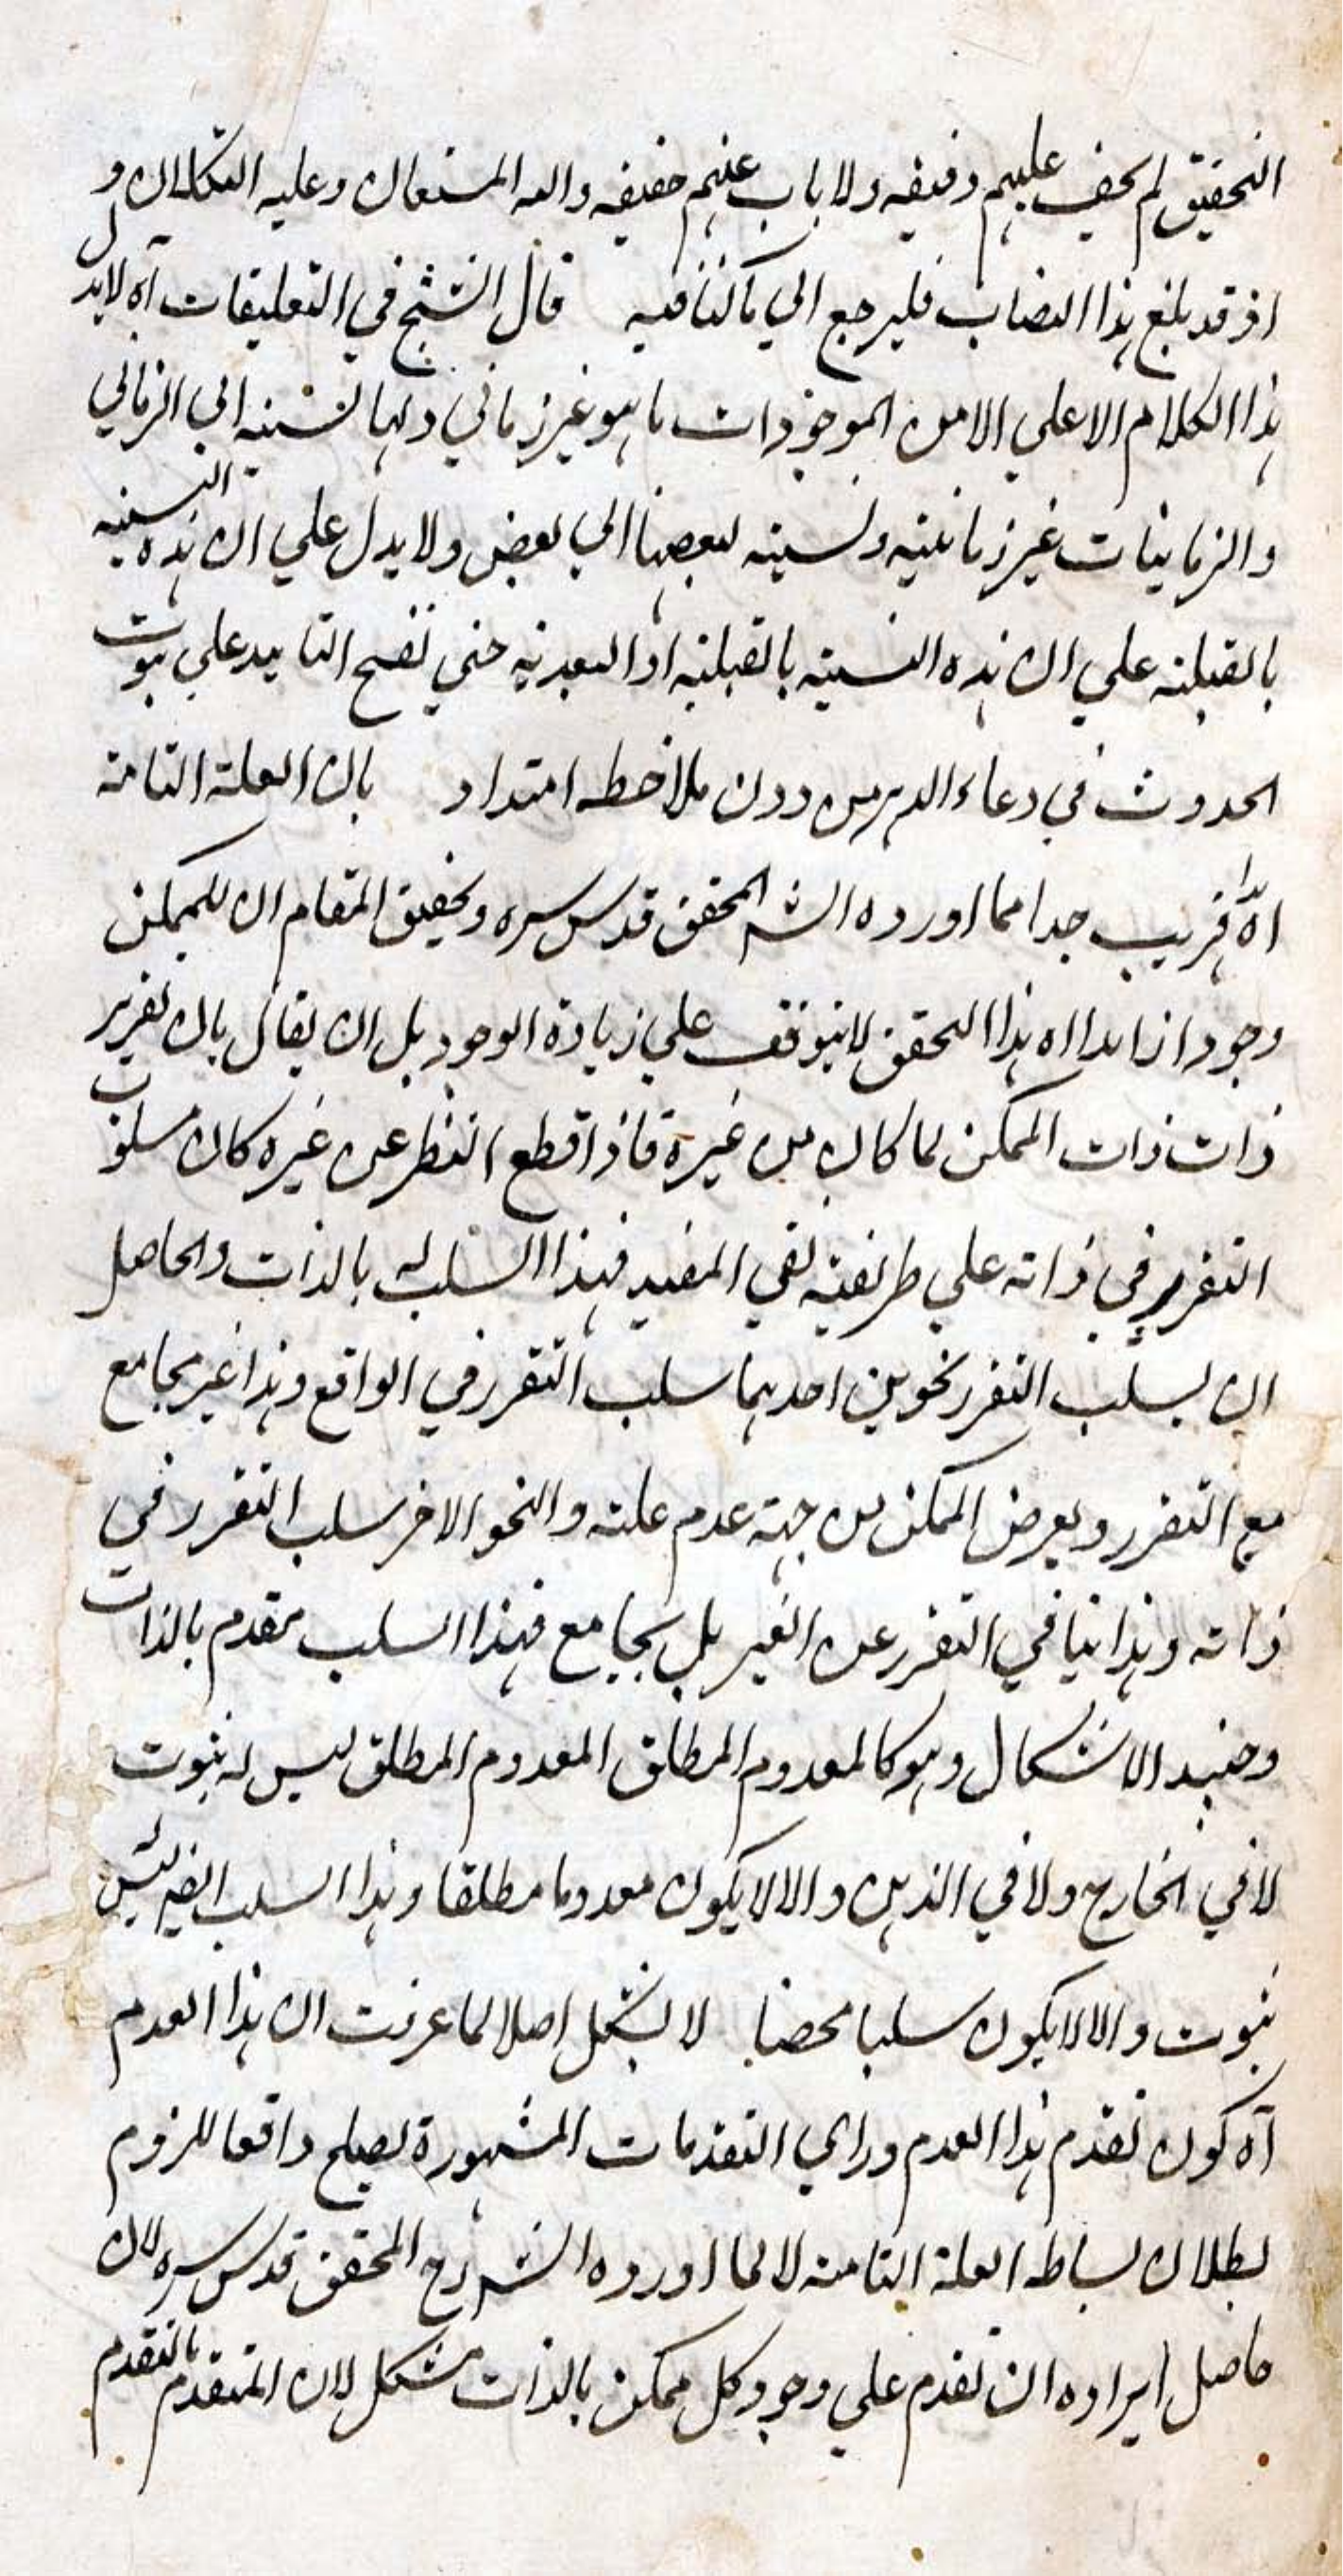 التحقيق لم يخف عليهم دقيقه ولا باب عنهم حقيقه والله المستعان وعليه التكلان و
اذ قد بلغ هذا النصاب فليرجع الي ما كنا فيه قال الشيخ في التعليقات آه لا يدل
هذا الكلام الا علي الا من الموجودات ما هو غير زماني ولها نسبته الي الزماني
والزمانيات غير زمانيته ونسبته بعضها الي بعض ولا يدل علي ان هذه النسبته
بالقبلته علي ان هذه النسبته بالقبليته او البعديه حتي تصح التاييد علي ثبوت
الحدوث في وعاء الدهر من دون ملاحظه امتداد بان العلة التامة
اه هذا قريب جدا مما اورده الشه المحقق قدس سره وتحقيق المقام ان للممكن
وجودا زايدا اه هذا التحقق لا يتوقف علي زيادة الوجود بل ان يقال بان تقرير
ذات ذات الممكن لما كان من غيره فاذا قطع النظر عن غيره كان مسلوب
التقرر في ذاته علي طريقته نفي المقيد فهذا السلب له بالذات والحاصل
ان لسلب التقرر نحوين احدهما سلب التقرر في الواقع وهذا غير مجامع
مع التقرر ويعرض الممكن من جهته عدم علته والنحو الاخر سلب التقرر في
ذاته وهذا ينافي التقرر عن الغير بل يجامع فهذا السلب مقدم بالذات
وحنيد الاشكال وهو كالمعدوم المطلق المعدوم المطلق ليس له ثبوت
لا في الخارج ولا في الذهن والا لا يكون معدوما مطلقا وهذا السلب ايضه ليس له
ثبوت والا لا يكون سلبا محضا لا يشكل اصلا لما عرفت ان هذا العدم
آه كون تقدم هذا العدم وراي التقدمات المشهورة يصلح دافعا للزوم
بطلان بساطه العلة التامة لا لما اورده الشه رح المحقق قدس سره لان
حاصل ايراده ان تقدم علي وجود كل ممكن بالذات مشكل لان المتقدم بالتقدم